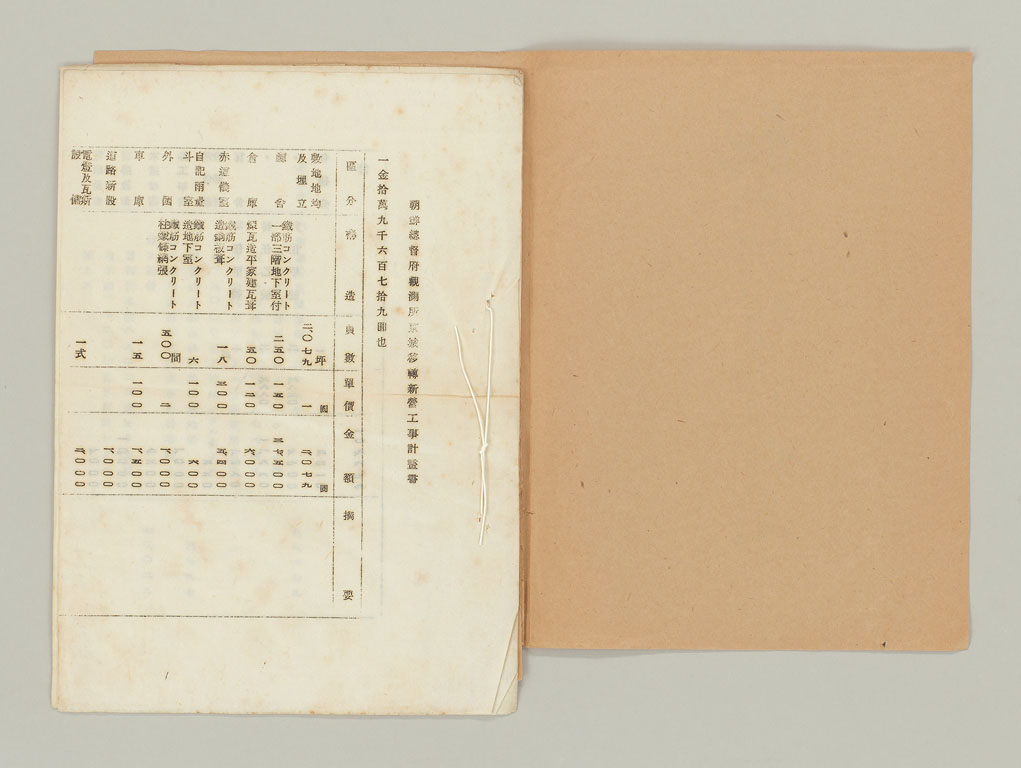 朝鮮總督府觀測所京城移轉新營工事計畫書
一金拾萬九千六百七拾九圓也
區分 構造 員數 單價 金額 摘要
敷地地均及埋立 二、〇七九坪 一圓 二、〇七九圓
廳舍 鐵筋コンクリート一部三階地下室付 二五〇 一五〇 三七、五〇〇
倉庫 煉瓦造平家建瓦葺 五〇 一二〇 六、〇〇〇
赤道儀室 鐵筋コンクリート造銅板葺 一八 三〇〇 五、四〇〇
自記雨量斗室 鐵筋コンクリート造地下室 六 一〇〇 六〇〇
外圍 鐵筋コンクリート柱 五〇〇間 二 一、〇〇〇
車庫 一五 一〇〇 一、五〇〇
道路新設 一、〇〇〇
電燈及瓦斯設備 一式 三、〇〇〇